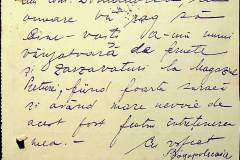 urmare vă rog să
bine-voiți a-mi numi
vânzătoare de fructe
și zarzavaturi la Magazia
fiind foarte săracă
și având mare nevoie de
acest post pentru întreținerea
mea. —
Cu respect